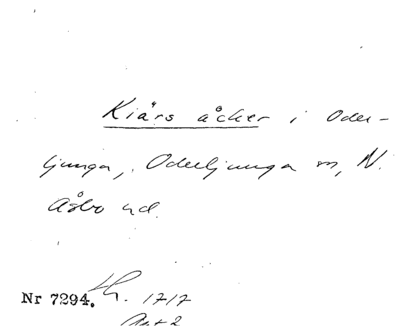 Kiärs åcker i Oder-
ljunga, Oderljunga sn, N.
Åsbo hd.
Nr 7294. 1717
Akt 2